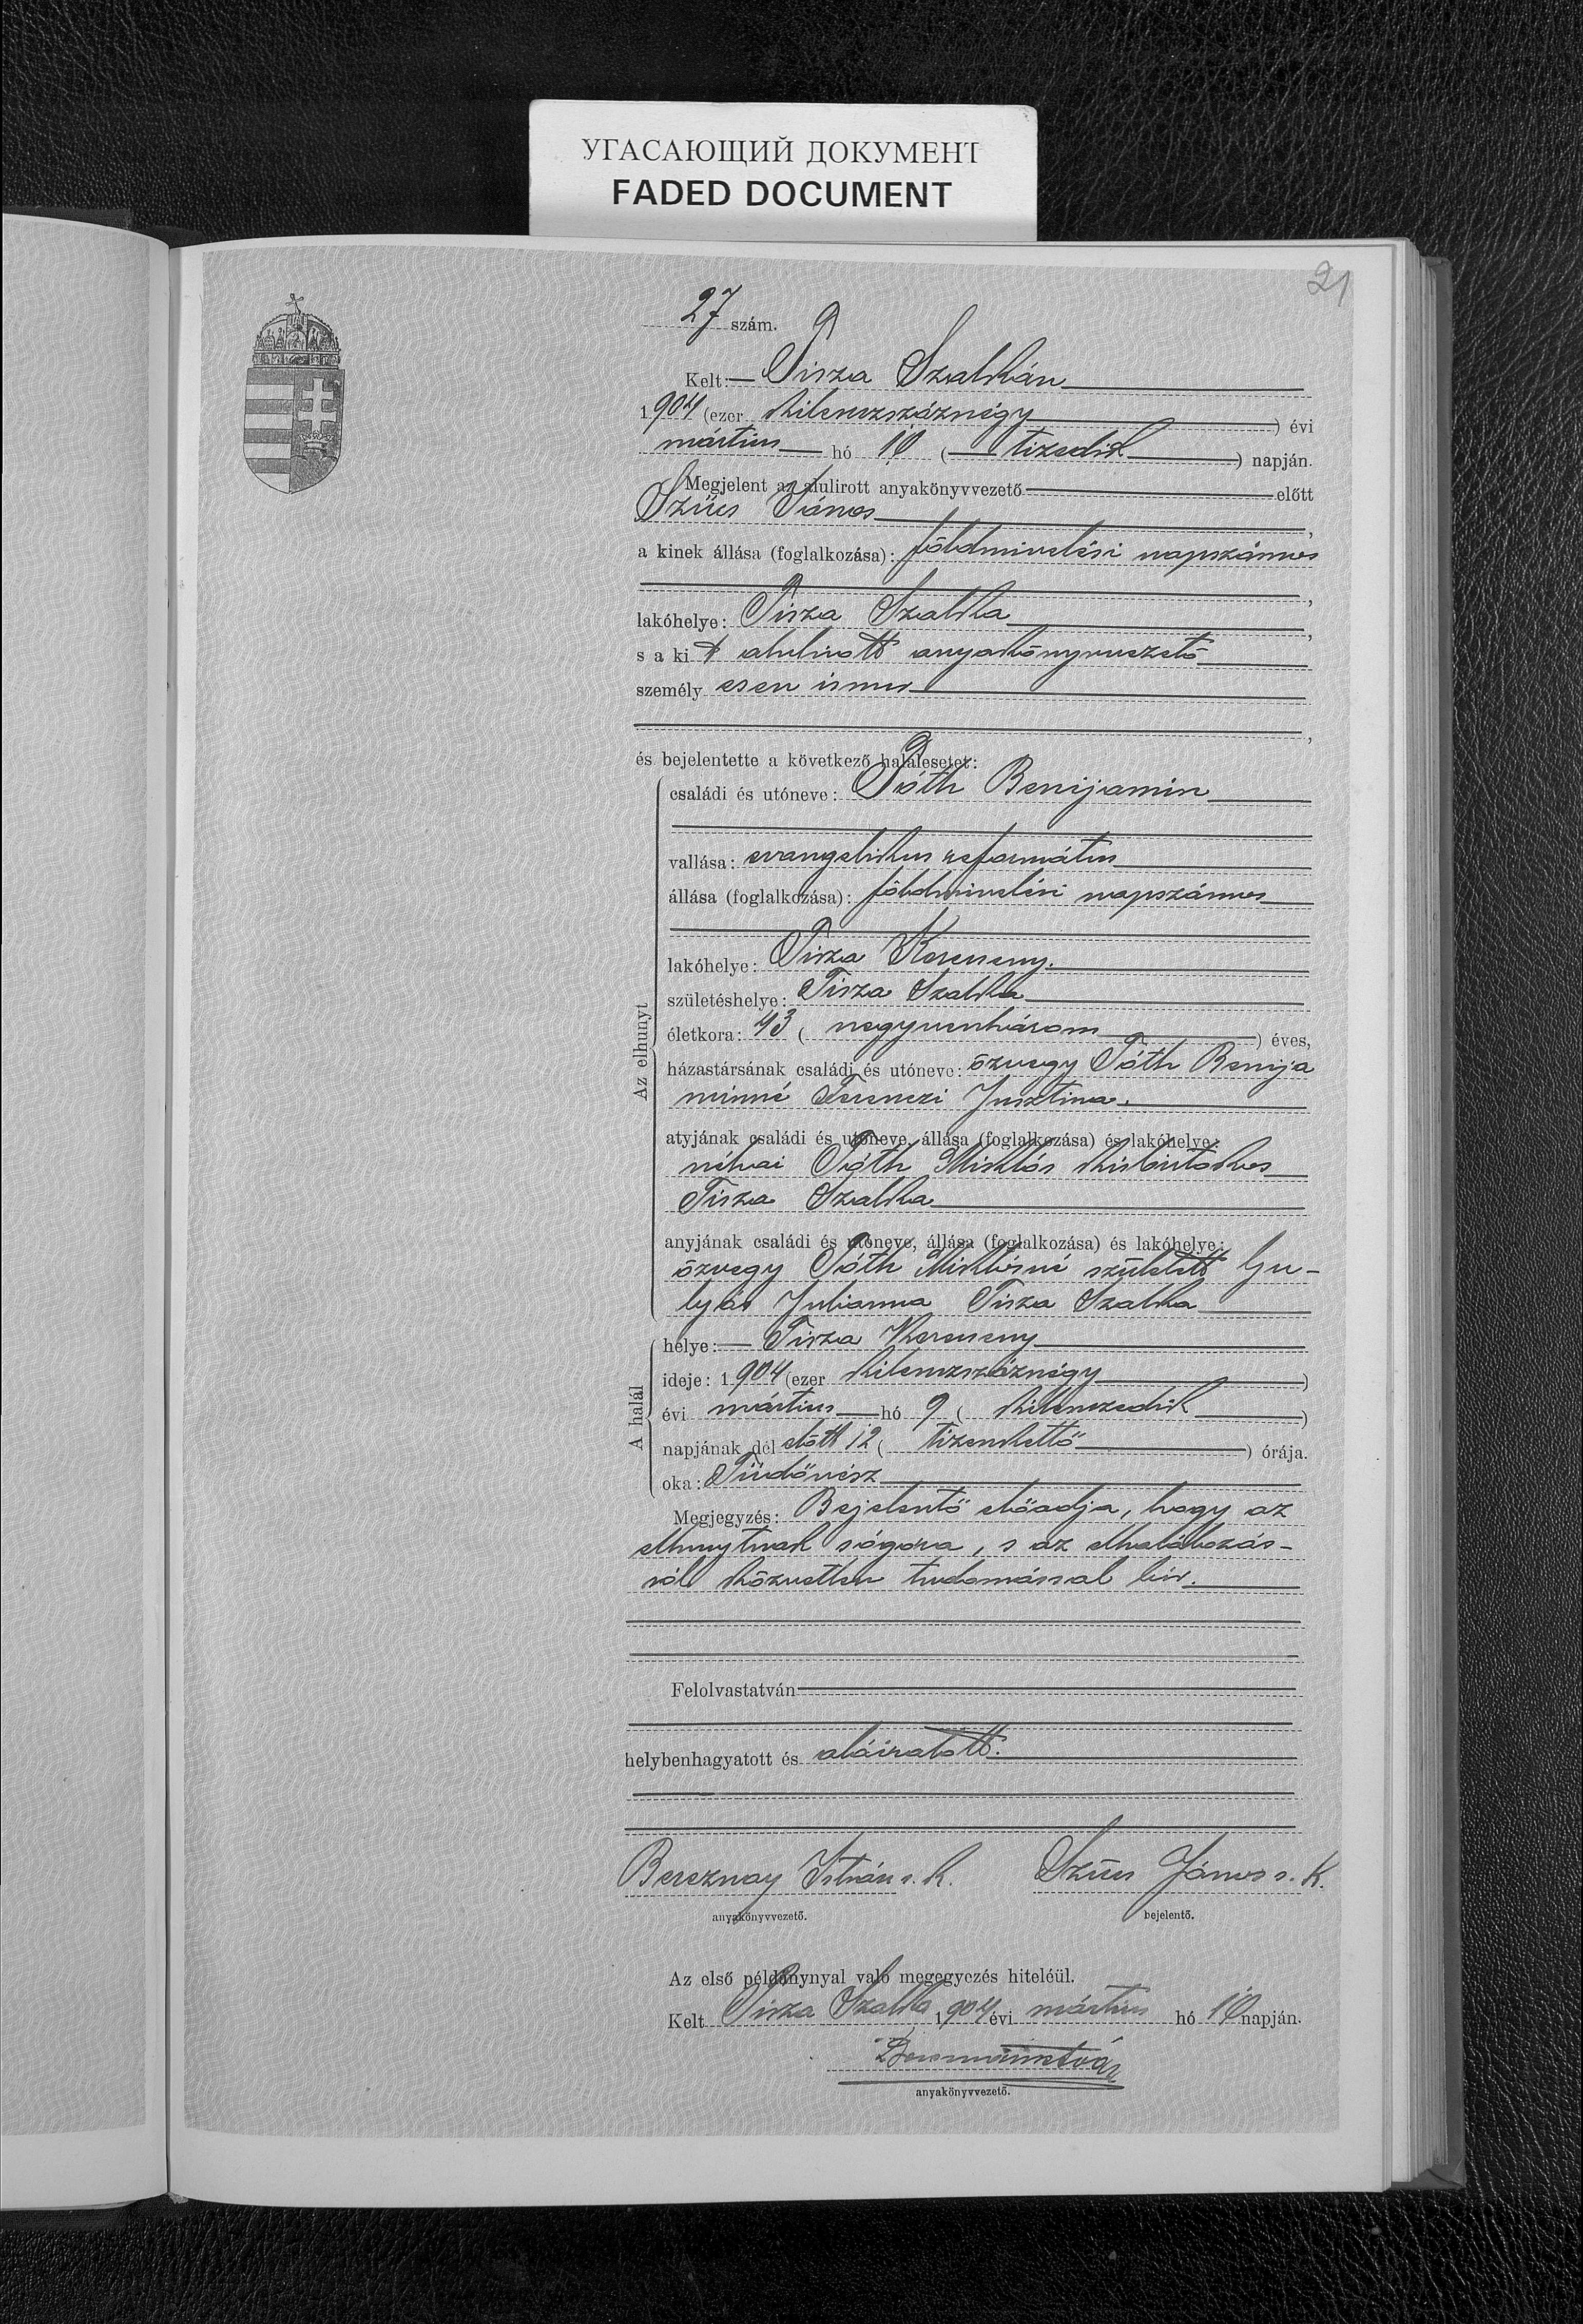 УГАСАЮЩИЙ ДОКУМЕНТ
FADED DOCUMENT
21
27 szám.
Kelt: Tisza Szalkán
1904 (ezer kilenczszáznégy) évi
mártius hó 10 (tizedik) napján.
Megjelent az alulirott anyakönyvvezető előtt
Szűcs János,
a kinek állása (foglalkozása): földmivelési napszámos
,
lakóhelye: Tisza Szalka,
s a kit alulirott anyakönyvvezető
személyesen ismer
,
és bejelentette a következő halálesetet:
Az elhunyt
családi és utóneve: Tóth Benijamin
vallása: evangelikus református
állása (foglalkozása): földmivelési napszámos
lakóhelye: Tisza Kerecseny.
születéshelye: Tisza Szalka
életkora: 43 (negyvenhárom) éves,
házastársának családi és utóneve: özvegy Tóth Benija
minné Ferenczi Jusztina.
atyjának családi és utóneve, állása (foglalkozása) és lakóhelye:
néhai Tóth Miklós kisbirtokos
Tisza Szalka
anyjának családi és utóneve, állása (foglalkozása) és lakóhelye:
özvegy Tóth Miklósné született Gu-
lyás Julianna Tisza Szalka
A halál
helye: Tisza Kerecseny
ideje: 1904 (ezer kilenczszáznégy)
évi mártius hó 9 (kilenczedik)
napjának dél előtt 12 (tizenkettő) órája.
oka: Tüdővész
Megjegyzés: Bejelentő előadja, hogy az
elhunytnak sógora, s az elhalálozás-
ról közvetlen tudomással bir.
Felolvastatván
helybenhagyatott és aláiratott.
Bereznay István s. k. Szűcs János s. k.
anyakönyvvezető. bejelentő.
Az első példánynyal való megegyezés hiteléül.
Kelt Tisza Szalka 1904 évi mártius hó 10 napján.
anyakönyvvezető.